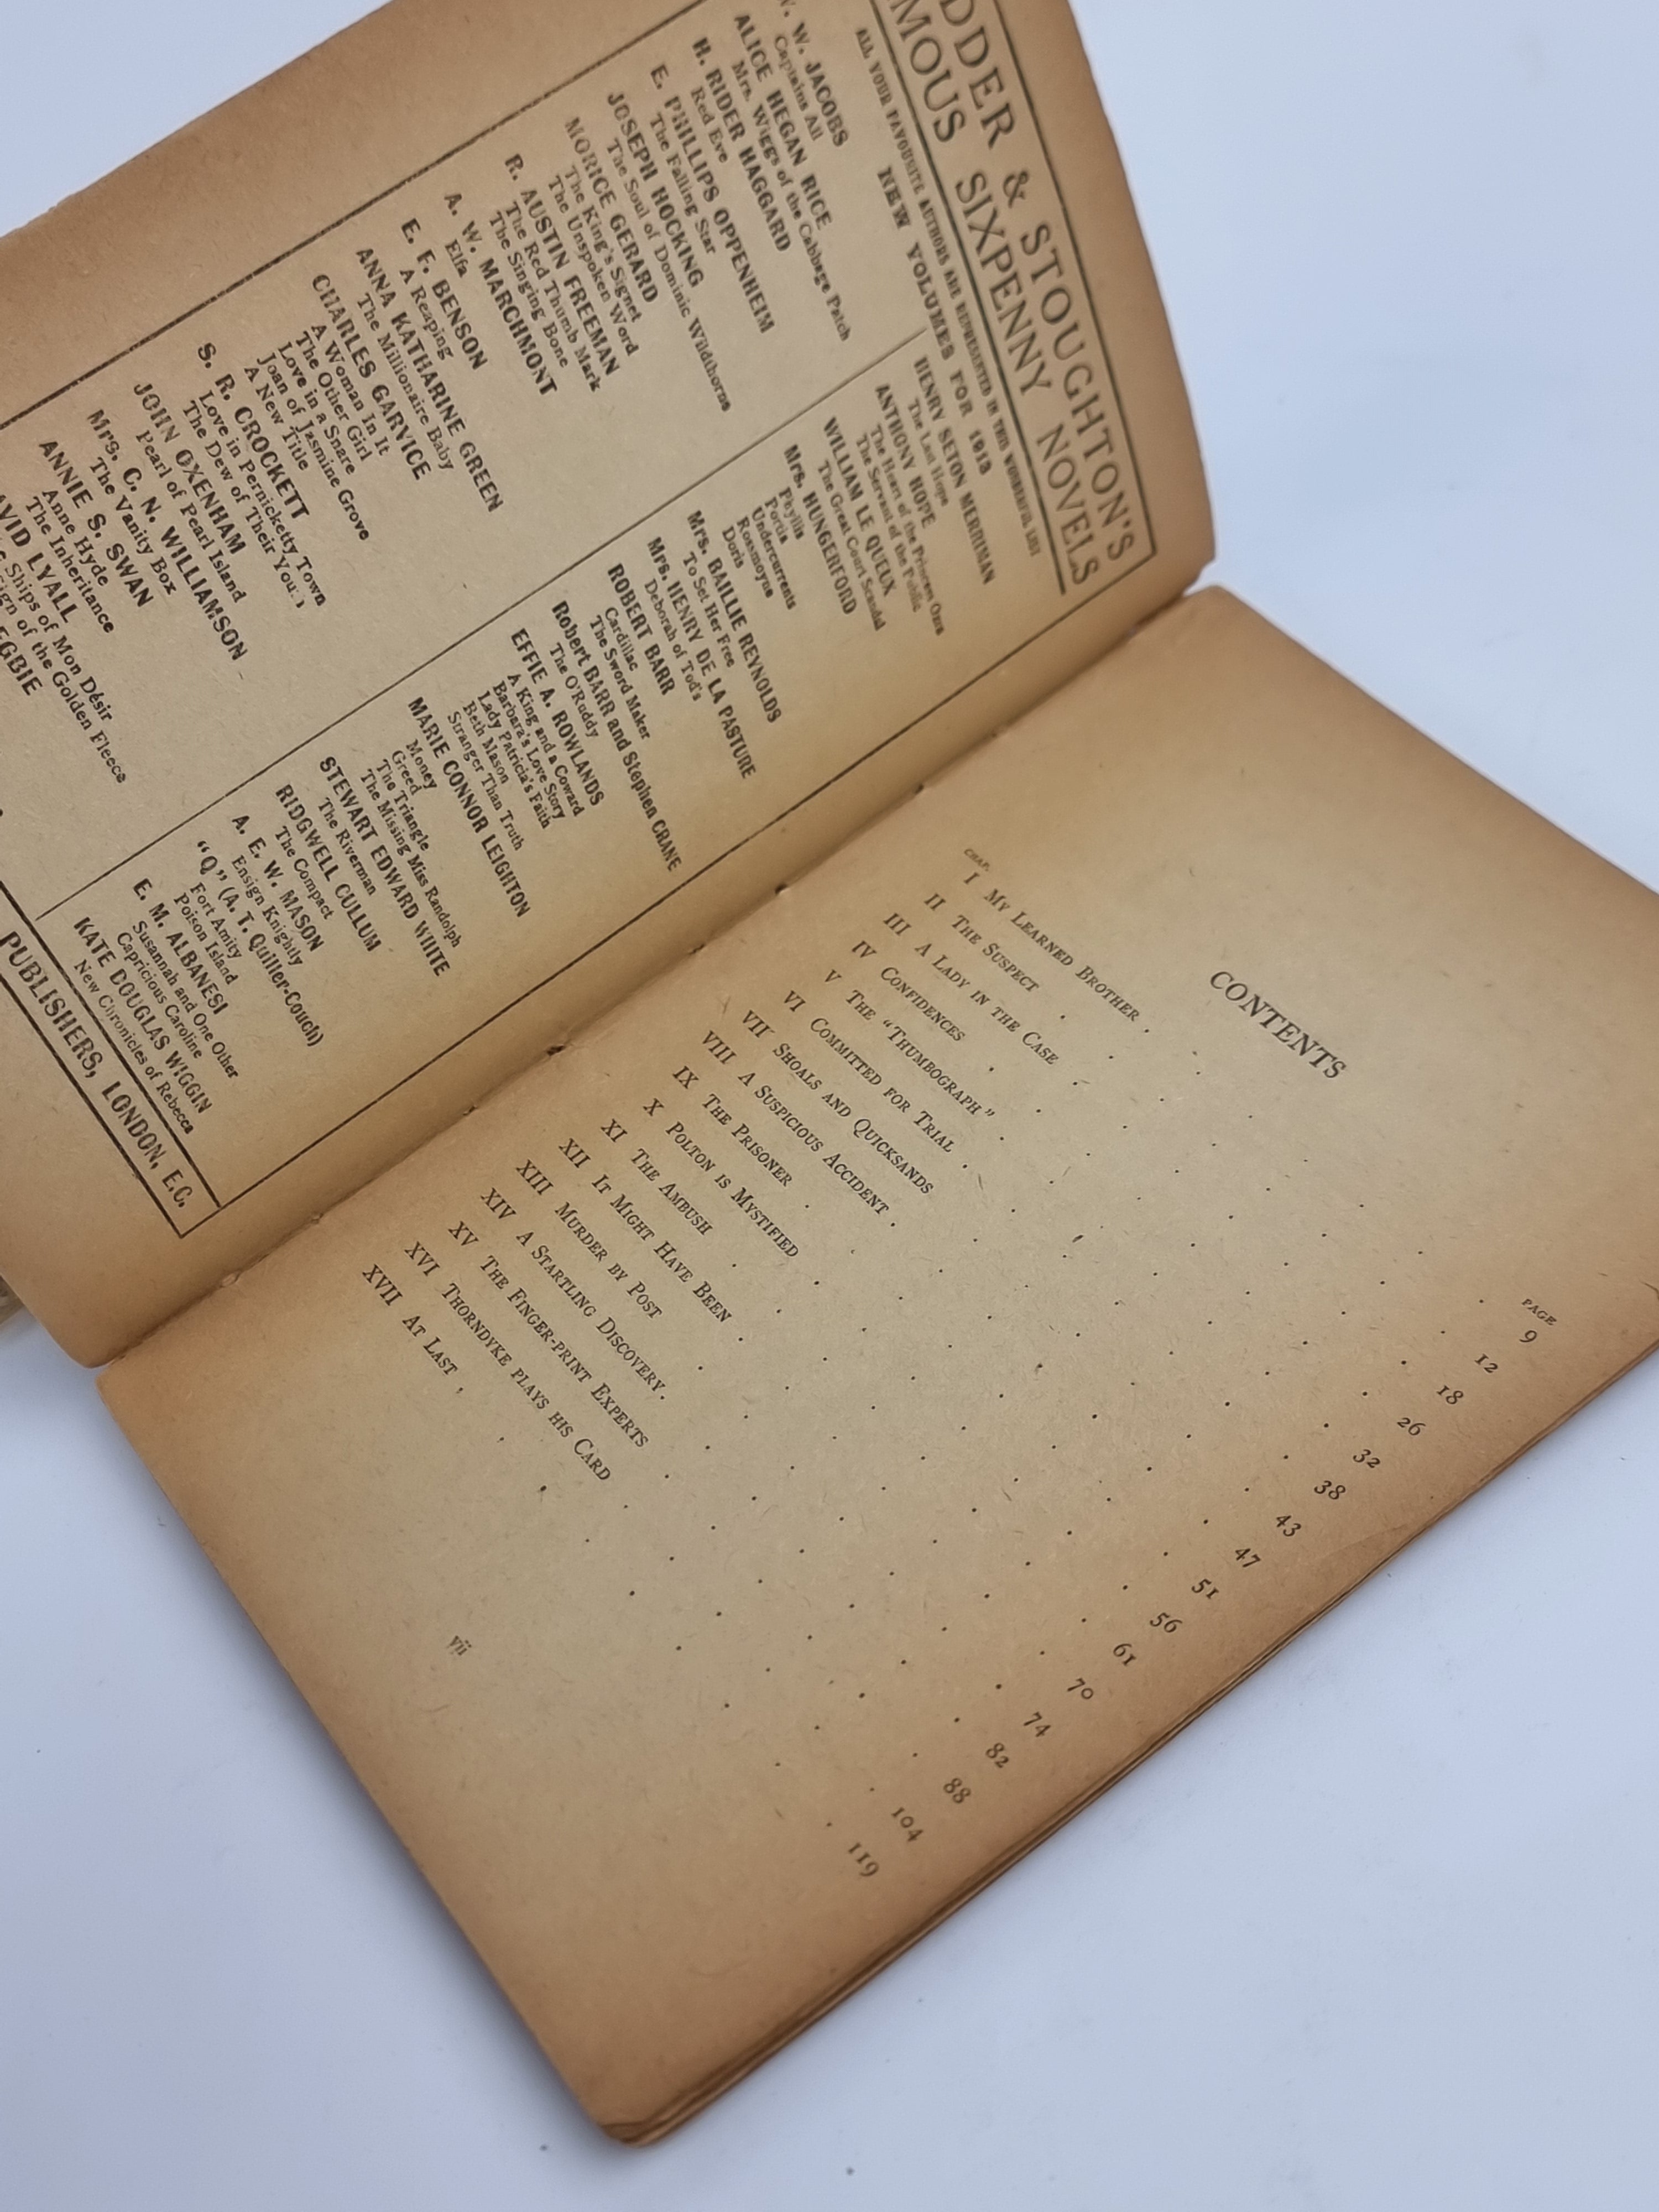 DDER & STOUGHTON'S
MOUS SIXPENNY NOVELS
ALL YOUR FAVOURITE AUTHORS ARE REPRESENTED IN THIS WONDERFUL LIST
NEW VOLUMES FOR 1913
W. W. JACOBS
Captains All
ALICE HEGAN RICE
Mrs. Wiggs of the Cabbage Patch
H. RIDER HAGGARD
Red Eve
E. PHILLIPS OPPENHEIM
The Falling Star
JOSEPH HOCKING
The Soul of Dominic Wildthorne
MORICE GERARD
The King's Signet
The Unspoken Word
R. AUSTIN FREEMAN
The Red Thumb Mark
The Singing Bone
A. W. MARCHMONT
Elfa
E. F. BENSON
A Reaping
ANNA KATHARINE GREEN
The Millionaire Baby
CHARLES GARVICE
A Woman In It
The Other Girl
Love in a Snare
Joan of Jasmine Grove
A New Title
S. R. CROCKETT
Love in Pernicketty Town
The Dew of Their Youth
JOHN OXENHAM
Pearl of Pearl Island
Mrs. C. N. WILLIAMSON
The Vanity Box
ANNIE S. SWAN
Anne Hyde
The Inheritance
AVID LYALL
Ships of Mon Désir
Sign of the Golden Fleece
EGBIE
HENRY SETON MERRIMAN
The Last Hope
ANTHONY HOPE
The Heart of the Princess Osra
The Servant of the Public
WILLIAM LE QUEUX
The Great Court Scandal
Mrs. HUNGERFORD
Phyllis
Portia
Undercurrents
Rossmoyne
Doris
Mrs. BAILLIE REYNOLDS
To Set Her Free
Mrs. HENRY DE LA PASTURE
Deborah of Tod's
ROBERT BARR
Cardillac
The Sword Maker
Robert BARR and Stephen CRANE
The O'Ruddy
EFFIE A. ROWLANDS
A King and a Coward
Barbara's Love Story
Lady Patricia's Faith
Beth Mason
Stranger Than Truth
MARIE CONNOR LEIGHTON
Money
Greed
The Triangle
The Missing Miss Randolph
STEWART EDWARD WHITE
The Riverman
RIDGWELL CULLUM
The Compact
A. E. W. MASON
Ensign Knightly
"Q" (A. T. Quiller-Couch)
Fort Amity
Poison Island
E. M. ALBANESI
Susannah and One Other
Capricious Caroline
KATE DOUGLAS WIGGIN
New Chronicles of Rebecca
PUBLISHERS, LONDON, E.C.
CONTENTS
CHAP. PAGE
I My Learned Brother . . . . 9
II The Suspect . . . . 12
III A Lady in the Case . . . . 18
IV Confidences . . . . 26
V The "Thumbograph" . . . . 32
VI Committed for Trial . . . . 38
VII Shoals and Quicksands . . . . 43
VIII A Suspicious Accident . . . . 47
IX The Prisoner . . . . 51
X Polton is Mystified . . . . 56
XI The Ambush . . . . 61
XII It Might Have Been . . . . 70
XIII Murder by Post . . . . 74
XIV A Startling Discovery . . . . 82
XV The Finger-print Experts . . . . 88
XVI Thorndyke plays his Card . . . . 104
XVII At Last . . . . 119
vii